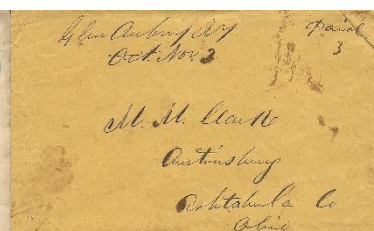 Glen Aubrey NY Paid
Oct. Nov. 2 3
M. M. Clark
Austinburg
Ashtabula Co
Ohio